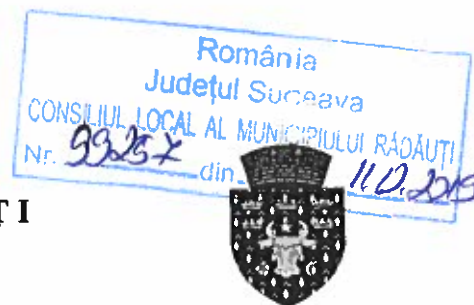 România
Județul Suceava
CONSILIUL LOCAL AL MUNICIPIULUI RĂDĂUȚI
Nr. 99257 din 2019
ȚI